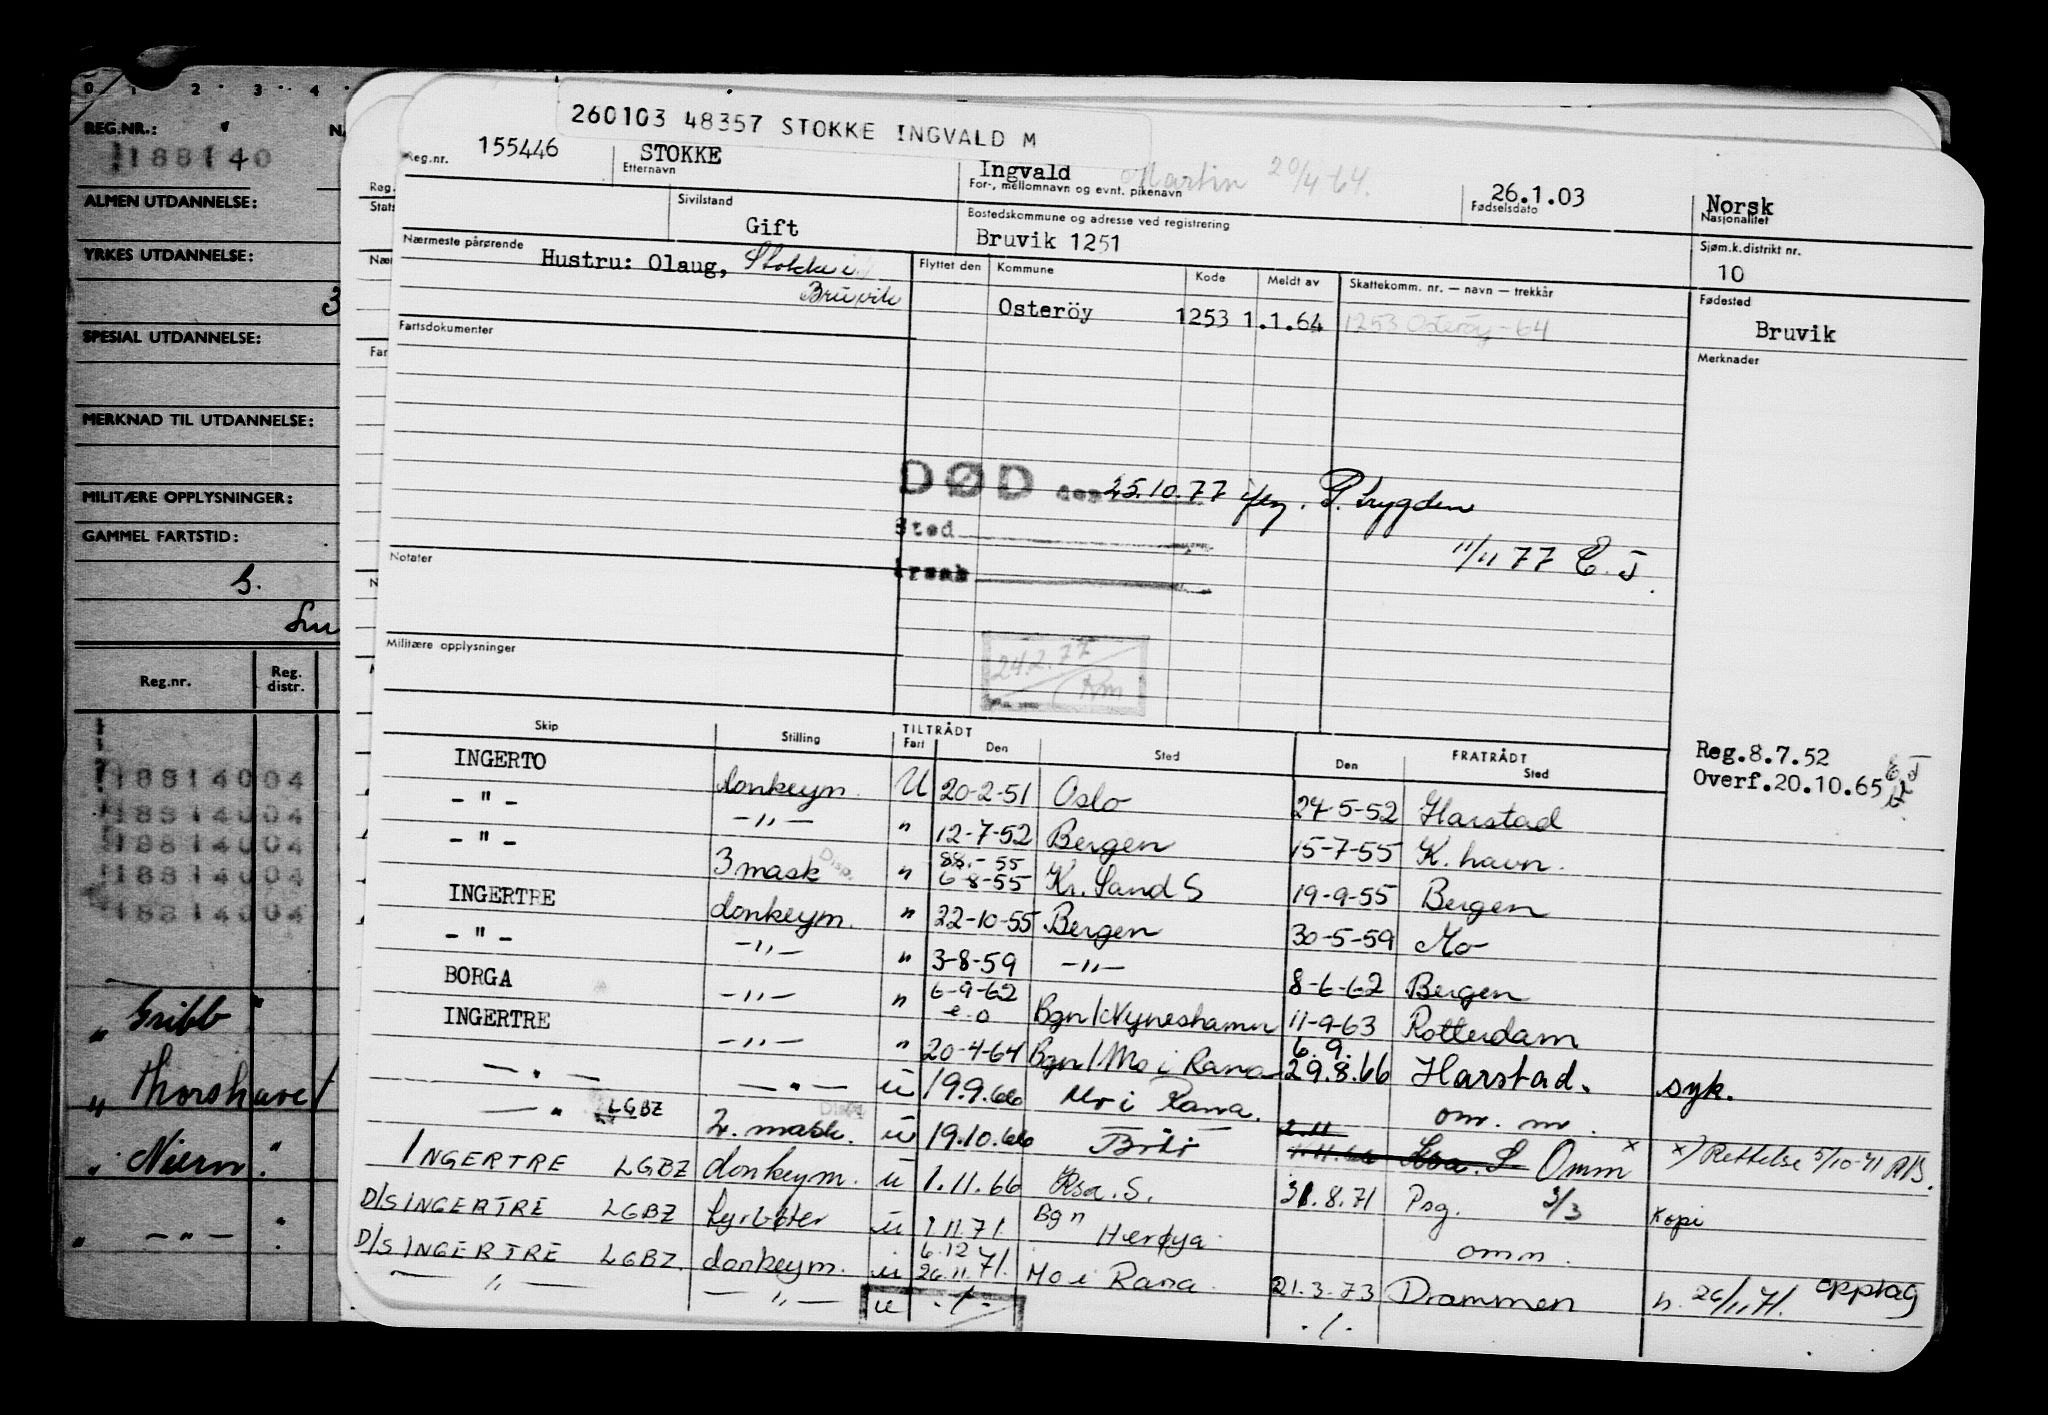 260103 48357 STOKKE INGVALD M
Reg.nr. 155446 STOKKE Ingvald Martin 20/4 64. 26.1.03 Norsk
Etternavn For-, mellomnavn og evnt. pikenavn Fødselsdato Nasjonalitet
Sivilstand Bostedskommune og adresse ved registrering Sjøm.k.distrikt nr.
Gift Bruvik 1251 10
Nærmeste pårørende Flyttet den Kommune Kode Meldt av Skattekomm. nr. — navn — trekkår Fødested
Hustru: Olaug, Stokke i
Bruvik
Osteröy 1253 1.1.64 1253 Osteröy-64 Bruvik
Fartsdokumenter Merknader
DØD den 25.10.77 ifлg. P. trygden
Sted
årsak
11/11 77 E.J.
Notater
Militære opplysninger
24.2.77
Rm
Skip Stilling TILTRÅDT FRATRÅDT
Fart Den Sted Den Sted
Reg.8.7.52
Overf.20.10.65
INGERTO donkeym. U 20-2-51 Oslo 24-5-52 Harstad
- " - -"- " 12-7-52 Bergen 15-7-55 K. havn.
- " - 3 mask Disp. " 88.- 55 6-8-55 Kr. Sand S 19-9-55 Bergen
INGERTRE donkeym. " 22-10-55 Bergen 30-5-59 Mo
- " - -"- " 3-8-59 -"- 8-6-62 Bergen
BORGA -"- " 6-9-62 e.o Bgn/Nyneshamn 11-9-63 Rotterdam
INGERTRE -"- " 20-4-64 Bgn/Mo i Rana 6.9. 29.8.66 Harstad. syk.
-"- -"- u 19.9.66 Mo i Rana. om. m.
-"- LGBZ 2. mask. Disp. u 19.10.66 2.11 1.11.66 Ksa. S Omm x x) Rettelse 5/10-71
INGERTRE LGBZ donkeym. u 1.11.66 Ksa. S. 31.8.71 Psg. 3/3 Kopi
D/S INGERTRE LGBZ fyrbøter u 1.11.71. Bgn Herøya omm.
D/S INGERTRE LGBZ. donkeym. u 6.12 26.11.71. Mo i Rana. 21.3.73 Drammen n. 26/11.71. opptag
-"- -"- u -/- -/-
0 1 2 3 4
REG.NR.:
188140
ALMEN UTDANNELSE:
YRKES UTDANNELSE:
3
SPESIAL UTDANNELSE:
MERKNAD TIL UTDANNELSE:
MILITÆRE OPPLYSNINGER:
GAMMEL FARTSTID:
Reg.nr. Reg. distr.
18814004
18814004
18814004
18814004
18814004
" Gribb "
" Thorshavet
" Niern "
" -"- "